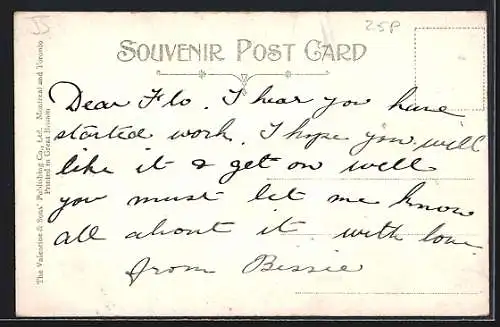 JS
25P
SOUVENIR POST CARD
Dear Flo. I hear you have
started work. I hope you will
like it & get on well
you must let me know
all about it with love
from Bissie
The Valentine & Sons' Publishing Co., Ltd. Montreal and Toronto
Printed in Great Britain